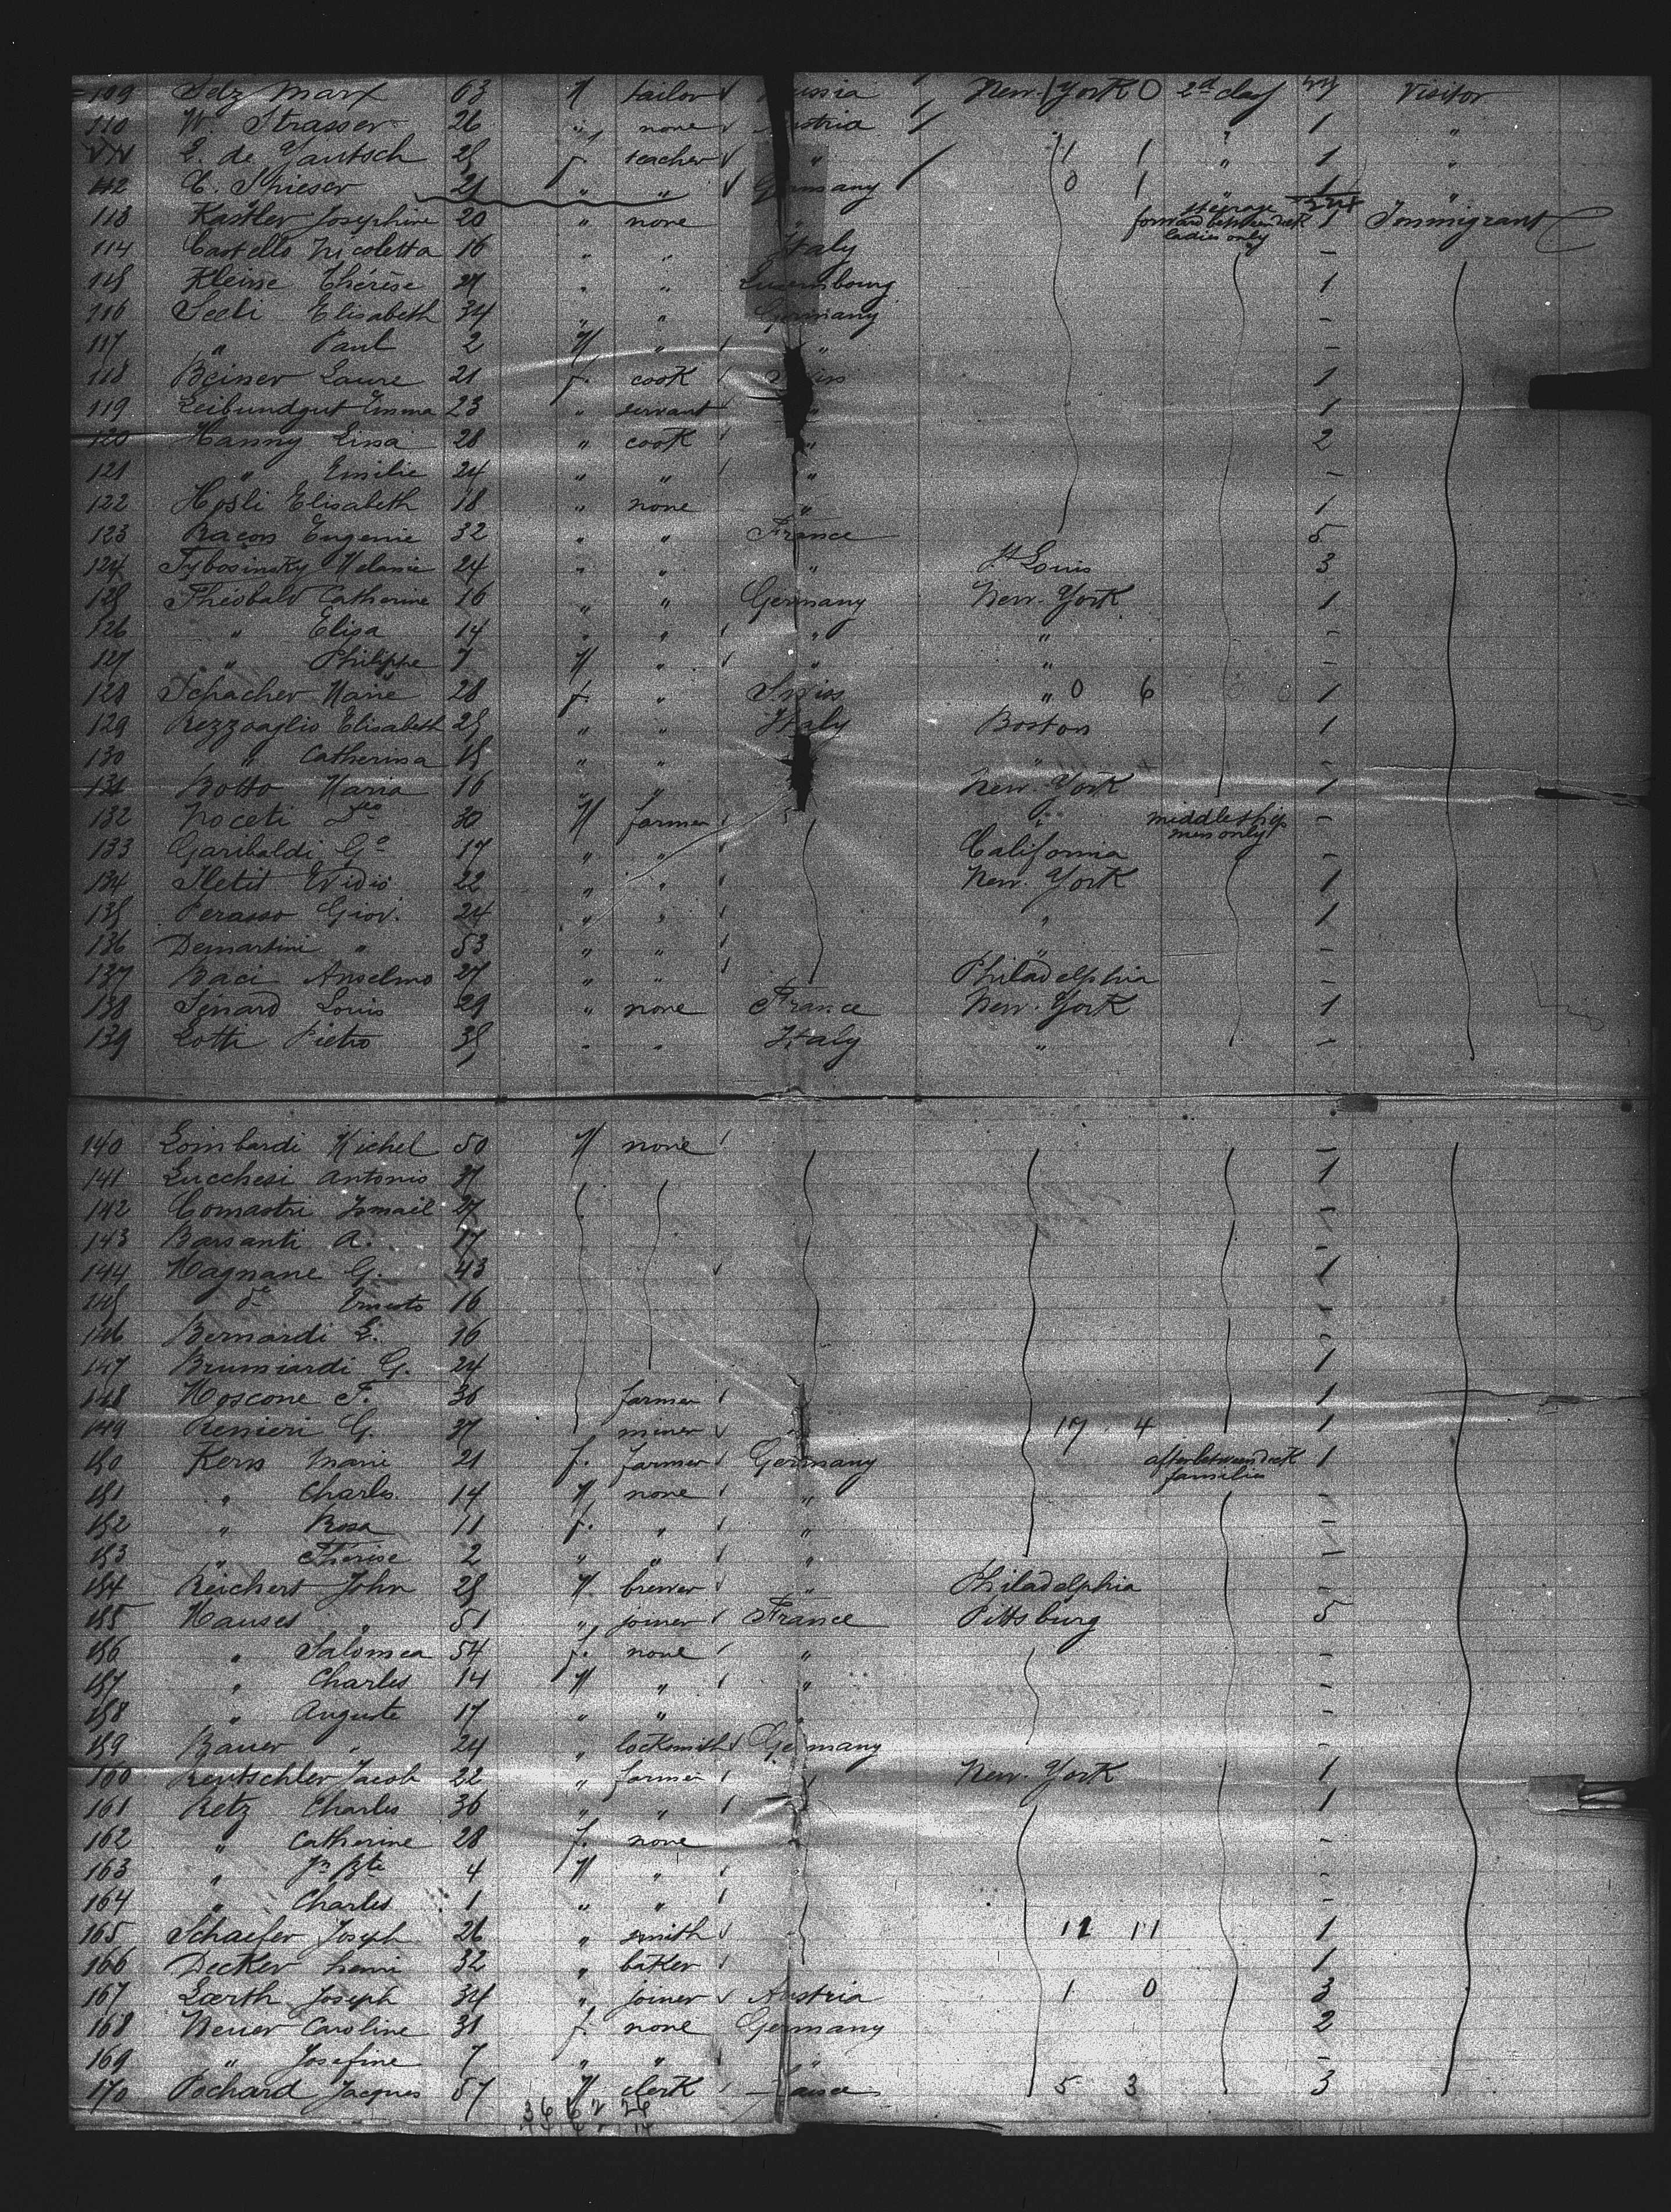 109 Selz Marx 63 M tailor ussia New-York 0 2d class Visitor
110 W. Strasser 26 " none stria " " 1 "
de Jautsch 25 f. teacher " 1 1 " 1 "
112 C. 21 " " Germany 0 1 " 1 "
113 Kastler Josephine 20 " none " steerage forward betweendeck ladies only 1 Immigrant
114 Castello Nicoletta 16 " " Italy -
115 Kleine Thérèse 27 " " Luxembourg 1
116 Seeli Elisabeth 34 " " Germany -
117 " Paul 2 M " " -
118 Beiner Laure 21 f. cook 1
119 Leibundgut Emma 23 " servant " 1
120 Hanny Lina 28 " cook " 2
121 " Emilie 24 " " " -
122 Hosli Elisabeth 18 " none " 1
123 Racon Eugenie 32 " " France 5
124 Tybosinsky Melanie 24 " " " St Louis 3
125 Théobald Catherine 16 " " Germany New-York 1
126 " Elisa 14 " " " " -
127 " Philippe 7 M " " " -
128 Schacher Marie 28 f. " Swiss " 0 6 1
129 Rezzoaglio Elisabeth 25 " " Italy Boston 1
130 " Catherina 15 " " " -
131 Botto Maria 16 " " New-York 1
132 Noceti 30 M farmer " middleship men only -
133 Garibaldi Go 17 " " California -
134 Iletit Evidio 22 " " New-York 1
135 Perasso Giov. 24 " " " 1
136 Demartini " 53 " " " -
137 Baci Anselmo 27 " " Philadelphia -
138 Sénard Louis 29 " none France New-York 1
139 Lotti Pietro 35 " " Italy " -
140 Lombardi Michel 50 M none -
141 Lucchesi Antonio 37 1
142 Comastri Ismail 27 -
143 Barsanti A. 17 -
144 Magnane G. 43 1
145 do Ernesto 16 -
146 Bernardi E. 16 -
147 Brumiardi G. 24 1
148 Moscone F. 36 farmer 1
149 Renieri G. 37 miner " 17 4 1
150 Kern Marie 21 f. farmer Germany after betweendeck families 1
151 " Charles 14 M none " -
152 " Rosa 11 f. " " -
153 " Thérise 2 " " " -
154 Reichert John 25 M brewer " Philadelphia -
155 Hauses " 51 " joiner France Pittsburg 5
156 " Salomea 54 f. none " -
157 " Charles 14 M " " -
158 " Auguste 17 " " " -
159 Bauer " 24 " locksmith Germany -
160 Rentschler Jacob 22 " farmer New-York 1
161 Retz Charles 36 " " 1
162 " Catherine 28 f. none -
163 " Jn Bte 4 M " -
164 " Charles 1 " " -
165 Schaefer Joseph 26 " smith 11 11 1
166 Decker Henri 32 " baker 1
167 Lærth Joseph 34 " joiner Austria 1 0 3
168 Neuer Caroline 31 f. none Germany 2
169 " Josefine 7 " " " -
170 Pochard Jacques 57 M clerk 5 3 3